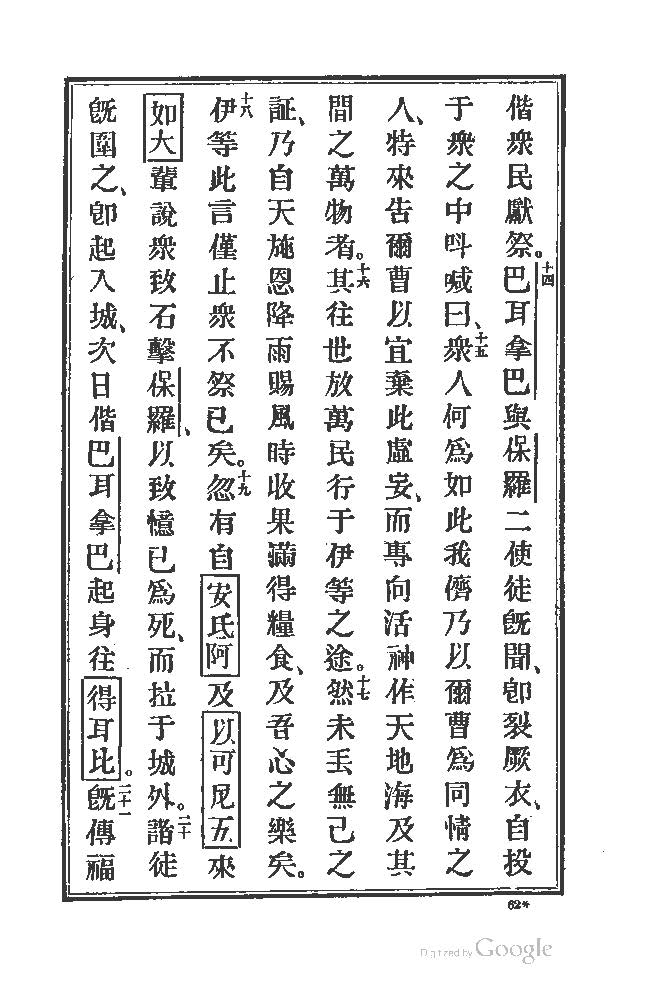 偕衆民獻祭。十四巴耳拿巴與保羅二使徒旣聞、卽裂厥衣、自投
于衆之中呌喊曰、十五衆人何爲如此我儕乃以爾曹爲同情之
人、特來告爾曹以宜棄此虛妄、而專向活神作天地海及其
間之萬物者。十六其往世放萬民行于伊等之途。十七然未丟無己之
証、乃自天施恩降雨賜風時收果滿得糧食、及吾心之樂矣。
十八伊等此言僅止衆不祭已矣。十九忽有自安氐阿及以可尼五來
如大輩說衆致石擊保羅、以致憶已爲死、而拉于城外。二十諧徒
旣圍之、卽起入城、次日偕巴耳拿巴起身往得耳比。二十一旣傳福
62*
Digitized by Google